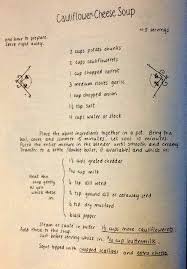 Cauliflower-Cheese Soup
one hour to prepare.
serve right away.
4-5 servings
2 cups potato chunks
2 cups cauliflowerets
1 cup chopped carrot
3 medium cloves garlic
1 cup chopped onion
1½ tsp salt
4 cups water or stock
Place the above ingredients together in a pot. Bring to a
boil, cover and simmer 15 minutes. Let cool 10 minutes.
Purée the entire mixture in the blender until smooth and creamy.
Transfer to a kettle (double boiler, if available) and whisk in:
1½ cups grated cheddar
¾ cup milk
¼ tsp dill weed
¼ tsp ground dill or caraway seed
¼ tsp dry mustard
black pepper
Heat this
gently
as you
whisk it in.
Steam or sauté in butter 1½ cups more cauliflowerets
Add these to the soup.
Just before serving whisk in: ¾ cup buttermilk
Serve topped with chopped scallions and extra cheese